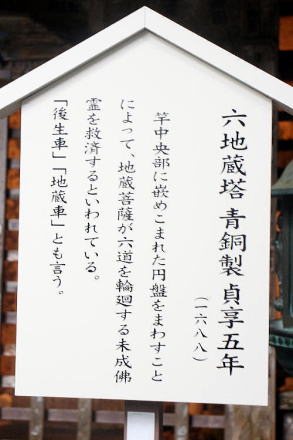 六地蔵塔 青銅製 貞享五年
（一六八八）
竿中央部に嵌めこまれた円盤をまわすこと
によって、地蔵菩薩が六道を輪廻する未成佛
霊を救済するといわれている。
「後生車」「地蔵車」とも言う。